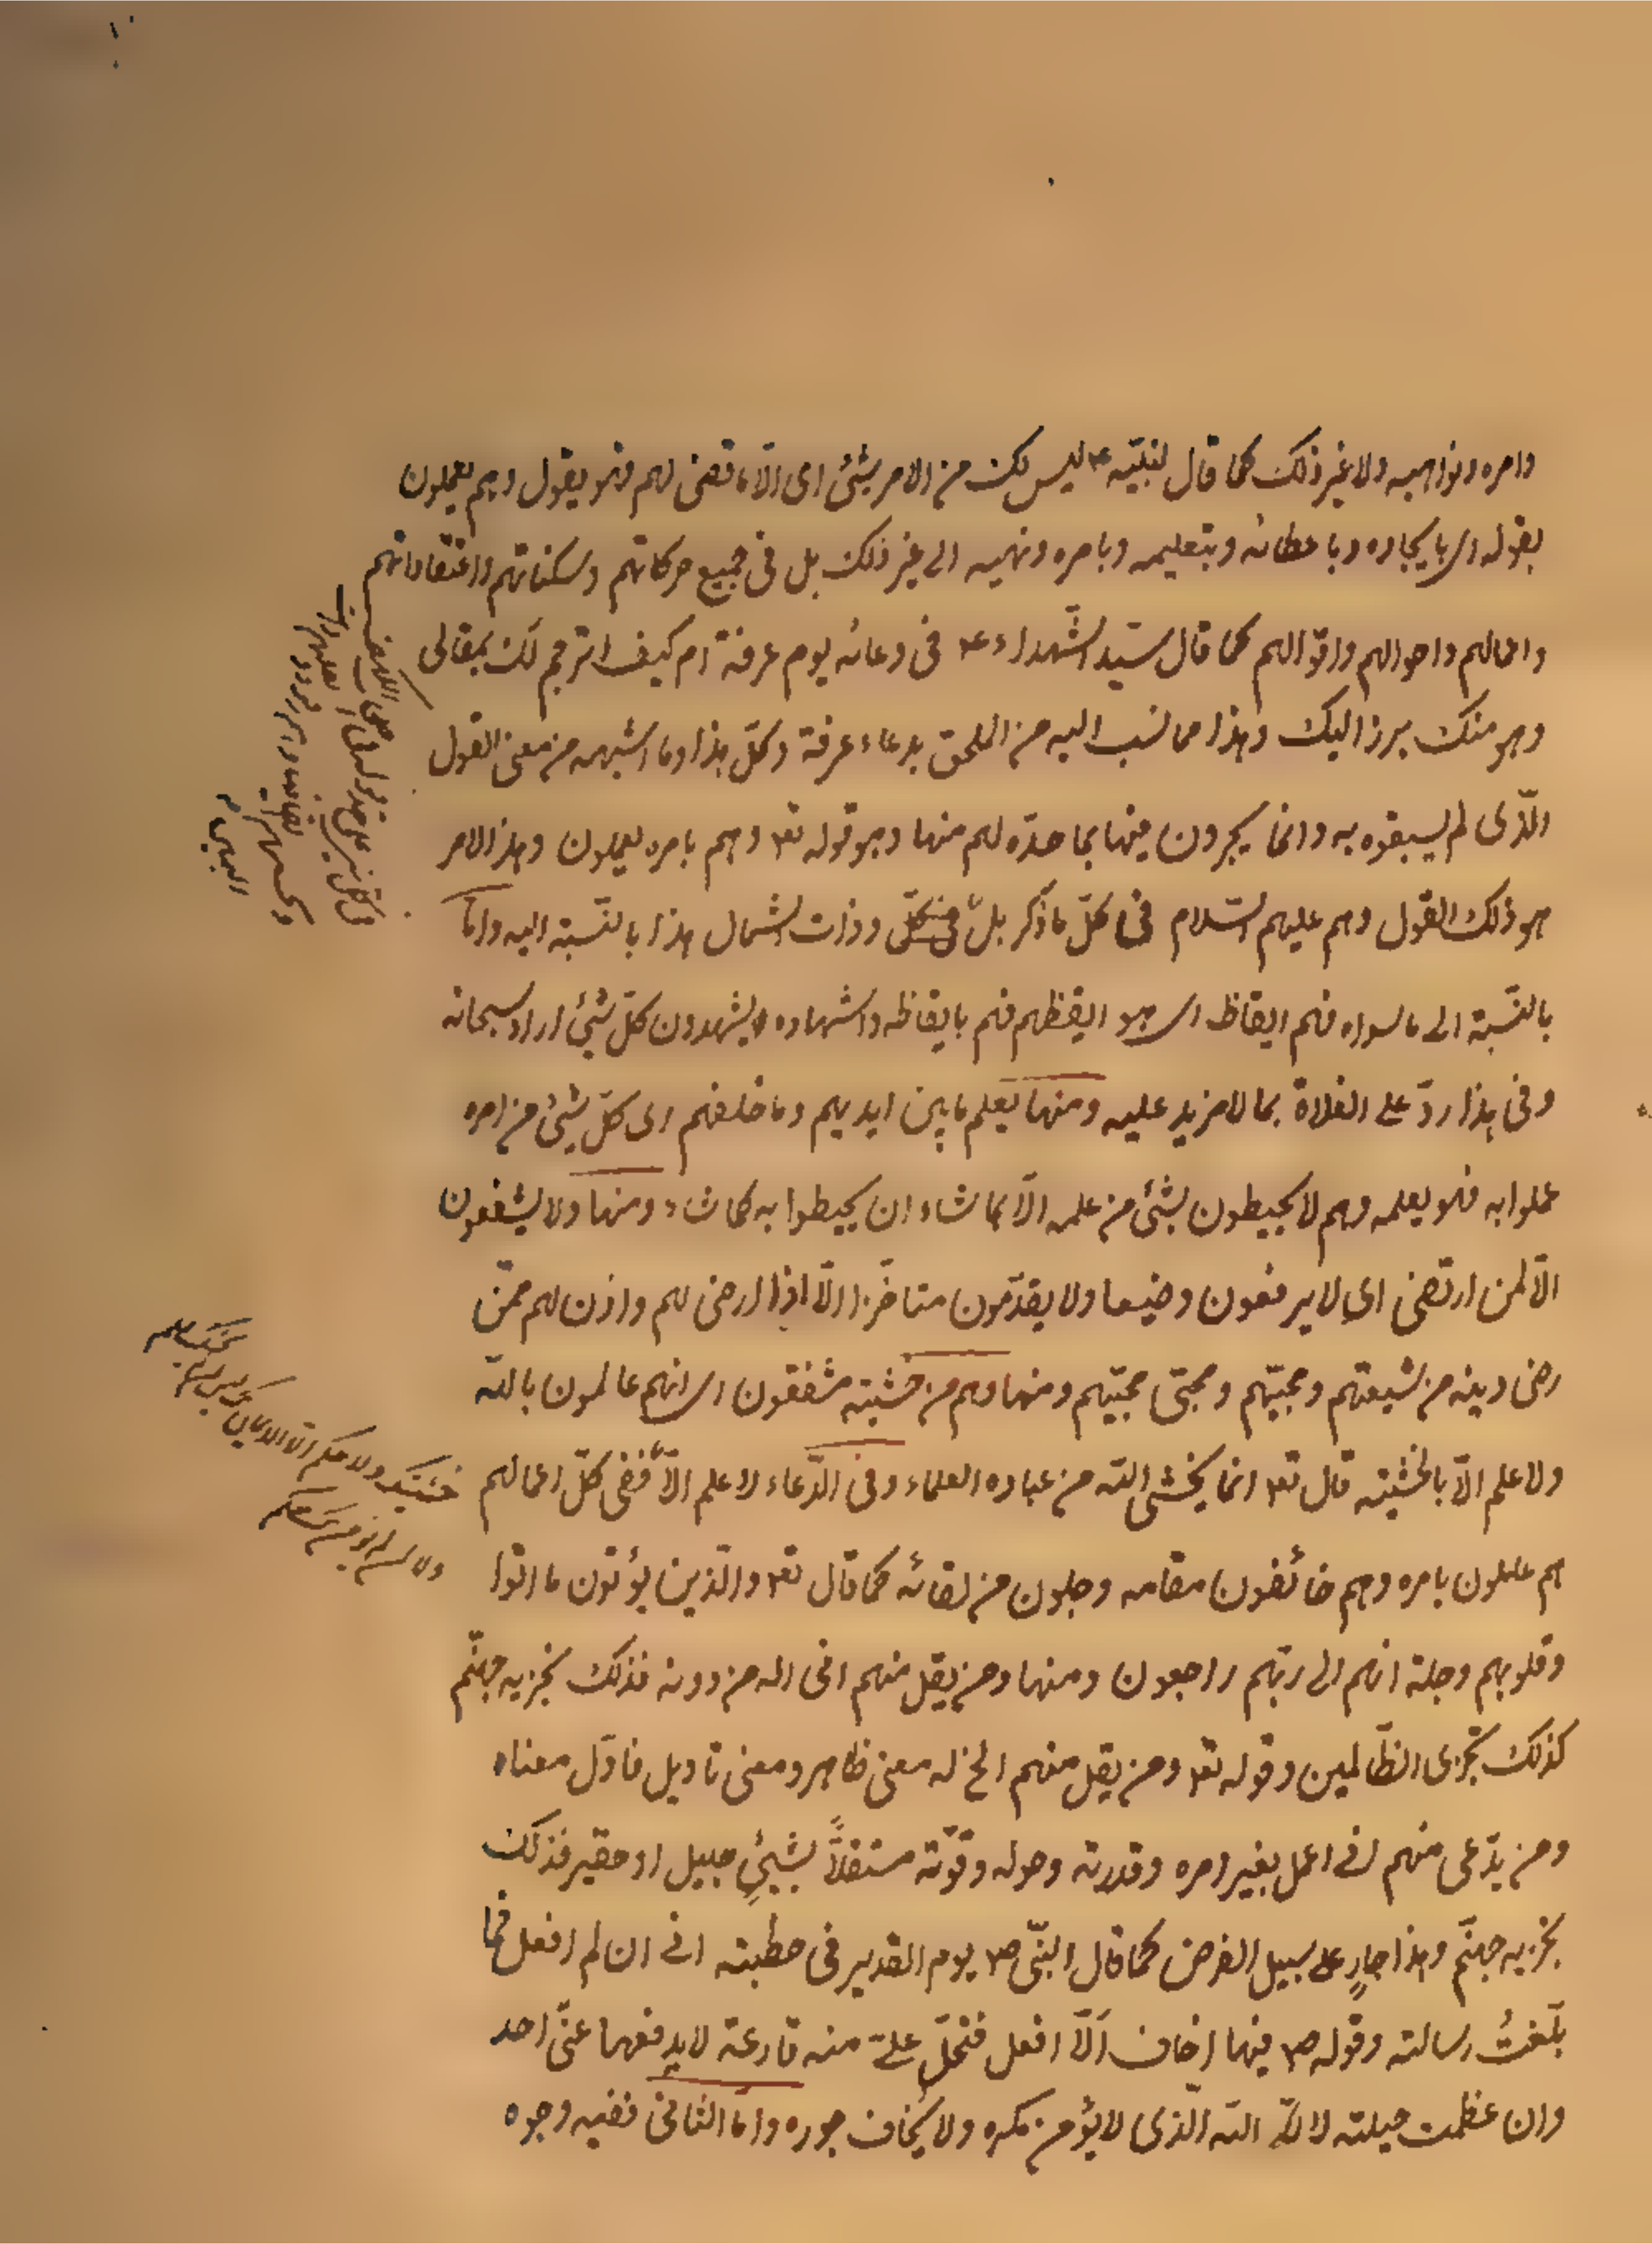 وامره ونواهيه ولا غير ذلك كما قال لنبيّه ع ليس لك من الامر شئ اى الّا ما قضى لهم فهو يقول وهم يعملون
بقوله اى بايجاده وباعطائه وبتعليمه وبامره ونهيه الى غير ذلك بل فى جميع حركاتهم وسكناتهم واعتقاداتهم
واعمالهم واحوالهم واقوالهم كما قال سيّد الشّهداء ع فى دعائه يوم عرفة ام كيف اترجم لك بمقالى
وهو منك برز اليك وهذا مما نسب اليه من الملحق بدعاء عرفة وكلّ هذا وما اشبهه من معنى القول
الّذى لم يسبقوه به وانما يجرون فيها بما حدّه لهم منها وهو قوله تع وهم بامره يعملون وهذا الامر
هو ذلك القول وهم عليهم السّلام فى كلّ ما ذكر بل وذات الشمال هذا بالنّسبة اليه وامّا
بالنّسبة الى ما سواه فهم ايقاظ اى هو ايقظهم فهم بايقاظه واشهاده يشهدون كلّ شئ اراد سبحانه
وفى هذا ردّ على الغلاة بما لا مزيد عليه ومنها يعلم ما بين ايديهم وما خلفهم اى كلّ شئ من امره
عملوا به فهو يعلمه وهم لا يحيطون بشئ من علمه الّا بما شاء ان يحيطوا به كما شاء ومنها ولا يشفعون
الّا لمن ارتضى اى لا يرفعون وضيعا ولا يقدّمون متاخّرا الّا اذا ارضى لهم واذن لهم ممّن
رضى دينه من شيعتهم ومحبّيهم ومحبّى محبّيهم ومنها وهم من خشيته مشفقون اى انهم عالمون بالله
ولا علم الّا بالخشية قال تع انما يخشى الله من عباده العلماء وفى الدّعاء لا علم الّا ففى كلّ اعمالهم
خشيتك ولا حكم الّا الايمان بك ليس لمن لم يخشك علم
ولا لمن لم يؤمن بك حكم
هم عاملون بامره وهم خائفون مقامه وجلون من لقائه كما قال تع والّذين يؤتون ما اتوا
وقلوبهم وجلة انهم الى ربّهم راجعون ومنها ومن يقل منهم انى اله من دونه فذلك نجزيه جهنّم
كذلك نجزى الظّالمين وقوله تع ومن يقل منهم الخ له معنى ظاهر ومعنى تاويل فاوّل معناه
ومن يدّعى منهم انى اعمل بغير امره وقدرته وحوله وقوّته مستقلاًّ بشئٍ جليل او حقير فذلك
نجزيه جهنّم وهذا جارٍ على سبيل الفرض كما قال النبّى ص يوم الغدير فى خطبته انى ان لم افعل فما
بلّغتُ رسالته وقوله ص فيها اخاف اَلّا افعل فتحلّ علىّ منه قارعة لا يدفعها عنّى احد
وان عظمت حيلته لانّه الله الّذى لا يؤمن مكره ولا يخاف جوره وامّا الثانى ففيه وجوه